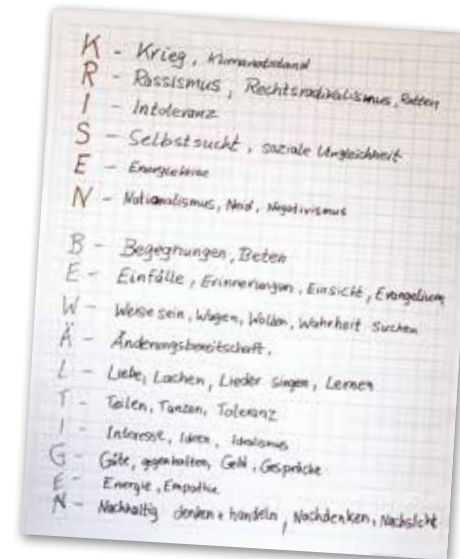 K - Krieg, Klimanotstand
R - Rassismus, Rechtsradikalismus, Ratten
I - Intoleranz
S - Selbstsucht, soziale Ungleichheit
E - Energiekrise
N - Nationalismus, Neid, Negativismus
B - Begegnungen, Beten
E - Einfälle, Erinnerungen, Einsicht, Evangelium
W - Weise sein, Wagen, Wollen, Wahrheit suchen
Ä - Änderungsbereitschaft,
L - Liebe, Lachen, Lieder singen, Lernen
T - Teilen, Tanzen, Toleranz
I - Interesse, Ideen, Idealismus
G - Güte, gegenhalten, Geld, Gespräche
E - Energie, Empathie
N - Nachhaltig denken + handeln, Nachdenken, Nachsicht